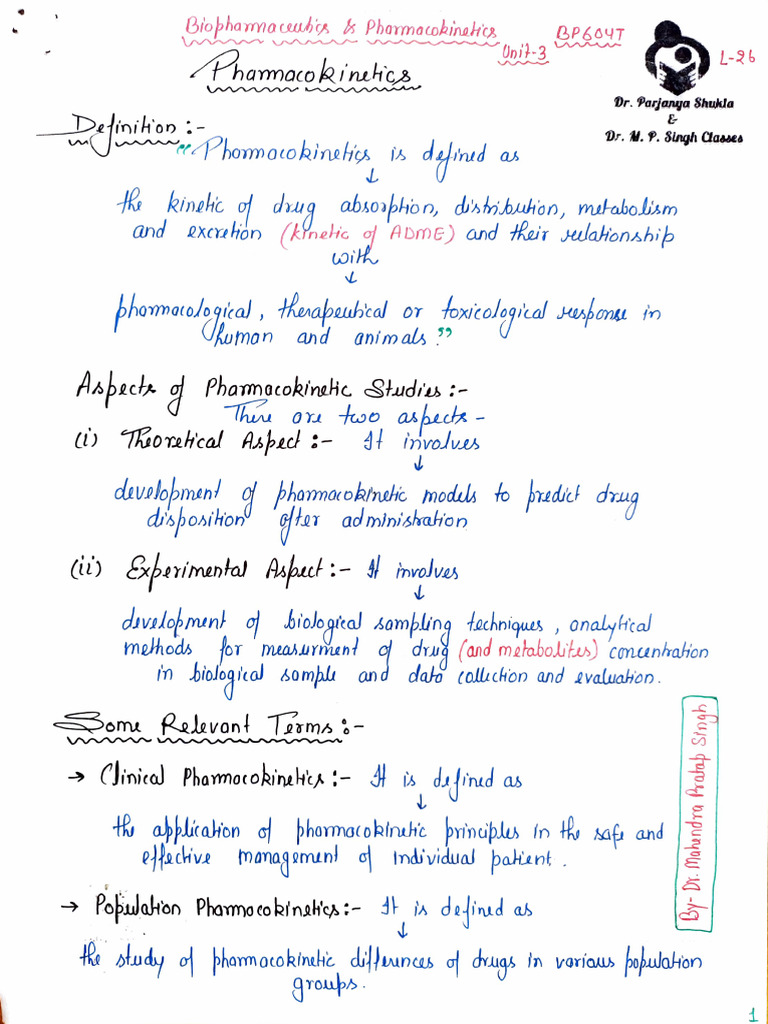 Biopharmaceutics & Pharmacokinetics BP604T
Unit-3 L-26
Pharmacokinetics
Dr. Parjanya Shukla
&
Dr. M. P. Singh Classes
Definition :-
"Pharmacokinetics is defined as
↓
the kinetic of drug absorption, distribution, metabolism
and excretion (kinetic of ADME) and their relationship
with
↓
pharmacological, therapeutical or toxicological response in
human and animals."
Aspects of Pharmacokinetic Studies :-
There are two aspects -
(i) Theoretical Aspect :- It involves
↓
development of pharmacokinetic models to predict drug
disposition after administration
(ii) Experimental Aspect :- It involves
↓
development of biological sampling techniques, analytical
methods for measurment of drug (and metabolites) concentration
in biological sample and data collection and evaluation.
Some Relevant Terms :-
→ Clinical Pharmacokinetics :- It is defined as
↓
the application of pharmacokinetic principles in the safe and
effective management of individual patient.
→ Population Pharmacokinetics :- It is defined as
↓
the study of pharmacokinetic differences of drugs in various population
groups.
By- Dr. Mahendra Pratap Singh
1